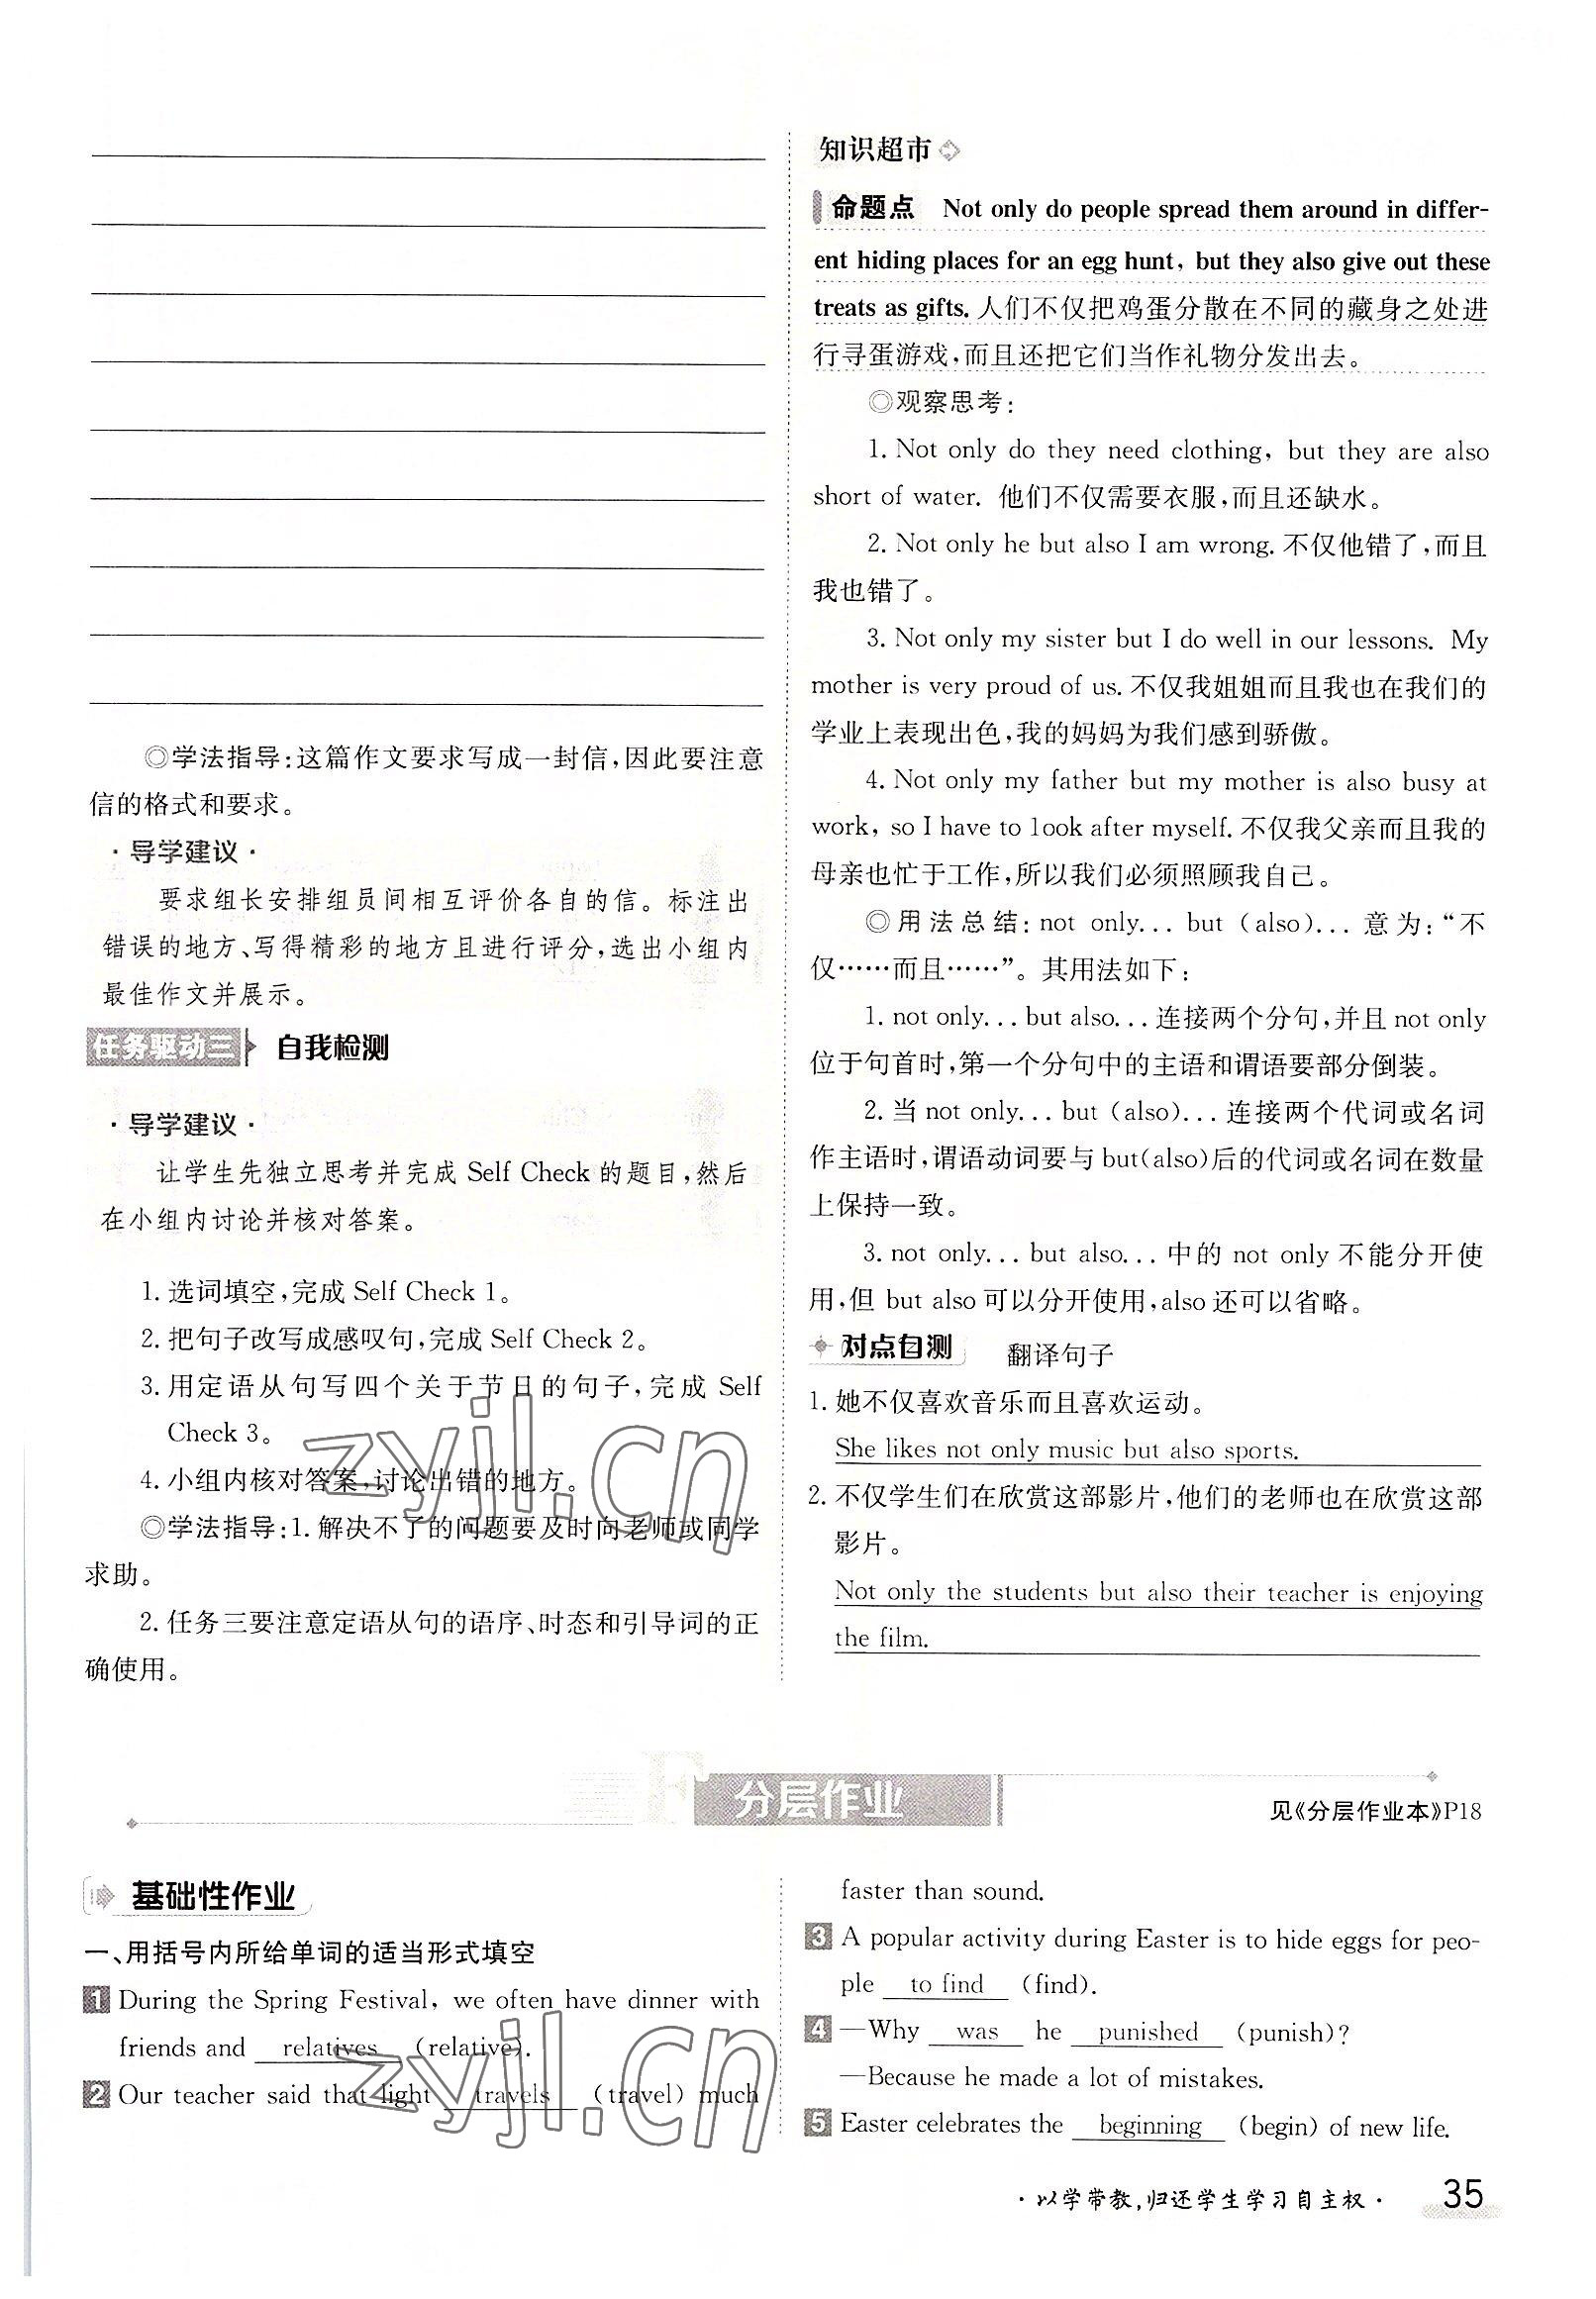 ◎学法指导:这篇作文要求写成一封信,因此要注意
信的格式和要求。
·导学建议·
要求组长安排组员间相互评价各自的信。标注出
错误的地方、写得精彩的地方且进行评分,选出小组内
最佳作文并展示。
任务驱动三 自我检测
·导学建议·
让学生先独立思考并完成 Self Check 的题目,然后
在小组内讨论并核对答案。
1. 选词填空,完成 Self Check 1。
2. 把句子改写成感叹句,完成 Self Check 2。
3. 用定语从句写四个关于节日的句子,完成 Self
Check 3。
4. 小组内核对答案,讨论出错的地方。
◎学法指导:1. 解决不了的问题要及时向老师或同学
求助。
2. 任务三要注意定语从句的语序、时态和引导词的正
确使用。
知识超市
命题点 Not only do people spread them around in differ-
ent hiding places for an egg hunt, but they also give out these
treats as gifts. 人们不仅把鸡蛋分散在不同的藏身之处进
行寻蛋游戏,而且还把它们当作礼物分发出去。
◎观察思考:
1. Not only do they need clothing, but they are also
short of water. 他们不仅需要衣服,而且还缺水。
2. Not only he but also I am wrong. 不仅他错了,而且
我也错了。
3. Not only my sister but I do well in our lessons. My
mother is very proud of us. 不仅我姐姐而且我也在我们的
学业上表现出色,我的妈妈为我们感到骄傲。
4. Not only my father but my mother is also busy at
work, so I have to look after myself. 不仅我父亲而且我的
母亲也忙于工作,所以我们必须照顾我自己。
◎用法总结:not only... but (also)... 意为:“不
仅……而且……”。其用法如下:
1. not only... but also... 连接两个分句,并且 not only
位于句首时,第一个分句中的主语和谓语要部分倒装。
2. 当 not only... but (also)... 连接两个代词或名词
作主语时,谓语动词要与 but(also)后的代词或名词在数量
上保持一致。
3. not only... but also... 中的 not only 不能分开使
用,但 but also 可以分开使用,also 还可以省略。
对点自测 翻译句子
1. 她不仅喜欢音乐而且喜欢运动。
She likes not only music but also sports.
2. 不仅学生们在欣赏这部影片,他们的老师也在欣赏这部
影片。
Not only the students but also their teacher is enjoying
the film.
F 分层作业
见《分层作业本》P18
基础性作业
一、用括号内所给单词的适当形式填空
1 During the Spring Festival, we often have dinner with
friends and relatives (relative).
2 Our teacher said that light travels (travel) much
faster than sound.
3 A popular activity during Easter is to hide eggs for peo-
ple to find (find).
4 —Why was he punished (punish)?
—Because he made a lot of mistakes.
5 Easter celebrates the beginning (begin) of new life.
zyjl.cn
zyjl.cn
·以学带教,归还学生学习自主权· 35